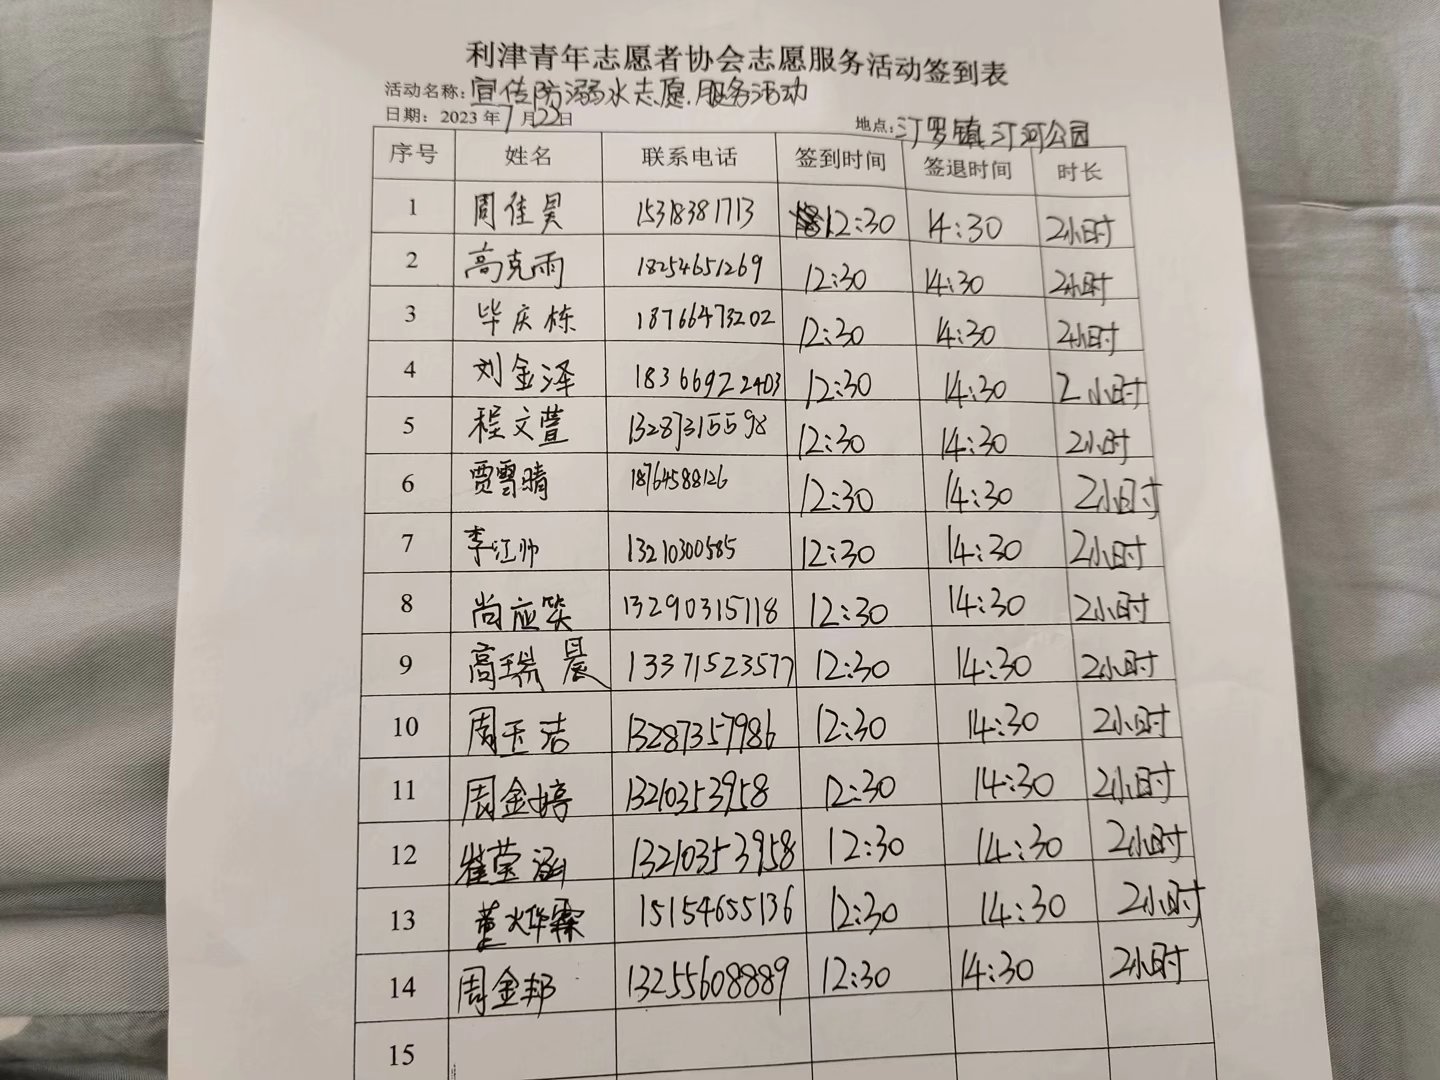 利津青年志愿者协会志愿服务活动签到表
活动名称：宣传防溺水志愿服务活动
日期：2023年7月22日 地点：汀罗镇汀河公园
序号 姓名 联系电话 签到时间 签退时间 时长
1 周佳昊 15318381713 12:30 14:30 2小时
2 高克雨 18254651269 12:30 14:30 2小时
3 毕庆栋 18766473202 12:30 14:30 2小时
4 刘金泽 18366922403 12:30 14:30 2小时
5 程文萱 13287315598 12:30 14:30 2小时
6 贾雪晴 18764588126 12:30 14:30 2小时
7 李江帅 13210300585 12:30 14:30 2小时
8 尚应笑 13290315118 12:30 14:30 2小时
9 高瑞晨 13371523577 12:30 14:30 2小时
10 周玉洁 13287357986 12:30 14:30 2小时
11 周金婷 13210353958 12:30 14:30 2小时
12 崔莹涵 13210353958 12:30 14:30 2小时
13 董烨霖 15154655136 12:30 14:30 2小时
14 周金邦 13255608889 12:30 14:30 2小时
15